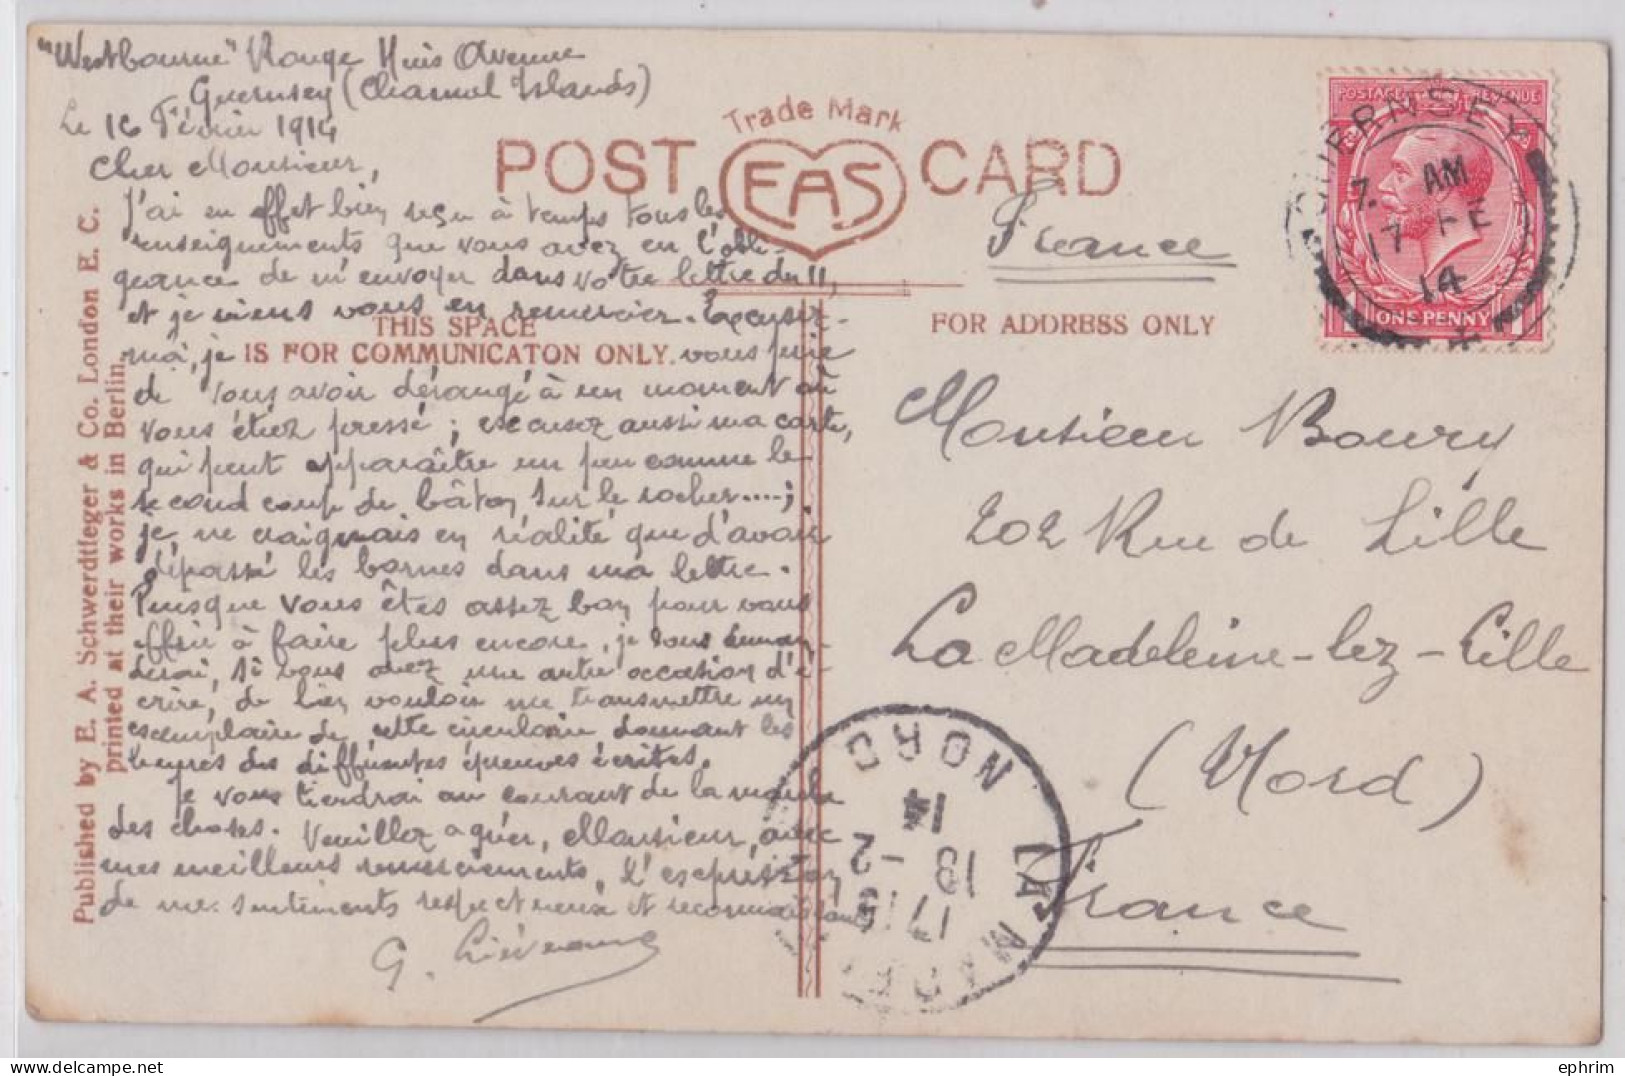 "Westbourne" Rouge Huis Avenue
Guernsey (Channel Islands)
Le 16 Février 1914
Cher Monsieur,
J'ai en effet bien reçu à temps tous les
renseignements que vous avez eu l'obli-
geance de m'envoyer dans votre lettre du 11,
et je viens vous en remercier. Excusez-
moi, je vous prie
de vous avoir dérangé à un moment où
vous étiez pressé; excusez aussi ma carte,
qui peut apparaître un peu comme le
second coup de bâton sur le rocher....;
je ne craignais en réalité que d'avoir
dépassé les bornes dans ma lettre.
Puisque vous êtes assez bon pour vous
offrir à faire plus encore, je vous deman-
derai, si vous avez une autre occasion d'é-
crire, de bien vouloir me transmettre un
exemplaire de cette circulaire donnant les
heures des différentes épreuves écrites.
Je vous tiendrai au courant de la marche
des choses. Veuillez agréer, Monsieur, avec
mes meilleurs remerciements, l'expression
de mes sentiments respectueux et reconnaissants
G.
POST CARD
Trade Mark
EAS
THIS SPACE
IS FOR COMMUNICATON ONLY.
FOR ADDRESS ONLY
Published by E. A. Schwerdtfeger & Co. London E. C.
printed at their works in Berlin.
France
Monsieur Boury
202 Rue de Lille
La Madeleine-lez-Lille
(Nord)
France
POSTAGE REVENUE
ONE PENNY
GUERNSEY
7. AM
17 FE
14
LA MADELEINE
NORD
17 15
18 - 2
14
ephrim